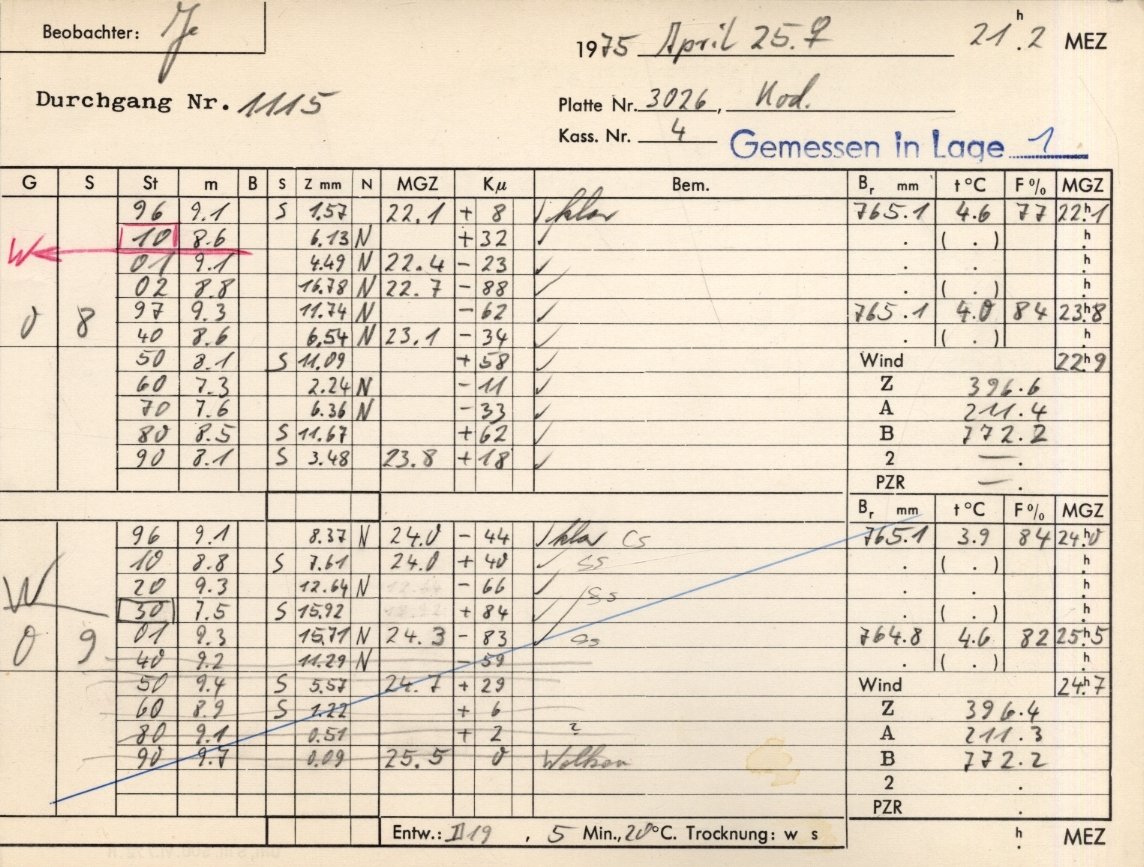 Beobachter: Je
1975 April 25. ♀ 21 h . 2 MEZ
Durchgang Nr. 1115
Platte Nr. 3026, Kod.
Kass. Nr. 4
Gemessen in Lage 1
G S St m B S Z mm N MGZ Kμ Bem. Br mm t °C F % MGZ
96 9.1 S 1.57 22.1 + 8 ✓ klar 765.1 4.6 77 22h1
10 8.6 6.13 N + 32 ✓ . ( . ) h
W 01 9.1 4.49 N 22.4 - 23 ✓ . . h
02 8.8 16.78 N 22.7 - 88 ✓ . ( . ) h
0 8 97 9.3 11.74 N - 62 ✓ 765.1 4.0 84 23h8
40 8.6 6.54 N 23.1 - 34 ✓ . ( . ) h
50 8.1 S 11.09 + 58 ✓ Wind 22h9
60 7.3 2.24 N - 11 ✓ Z 396.6
70 7.6 6.36 N - 33 ✓ A 211.4
80 8.5 S 11.67 + 62 ✓ B 772.2
90 8.1 S 3.48 23.8 + 18 ✓ 2 — .
PZR — .
Br mm t °C F % MGZ
96 9.1 8.37 N 24.0 - 44 ✓ klar Cs 765.1 3.9 84 24h0
10 8.8 S 7.61 24.0 + 40 ✓ . ( . ) h
W 20 9.3 12.64 N - 66 ✓ . . h
30 7.5 S 15.92 + 84 ✓ . ( . ) h
0 9 01 9.3 15.71 N 24.3 - 83 ✓ 764.8 4.6 82 25h5
40 9.2 11.29 N - 59 . ( . ) h
50 9.4 S 5.57 24.7 + 29 Wind 24h7
60 8.9 S 1.22 + 6 Z 396.4
80 9.1 0.51 + 2 ? A 211.3
90 9.7 0.09 25.5 0 Wolken B 772.2
2 .
PZR .
Entw.: D 19 , 5 Min., 20 °C. Trocknung: w s h . MEZ